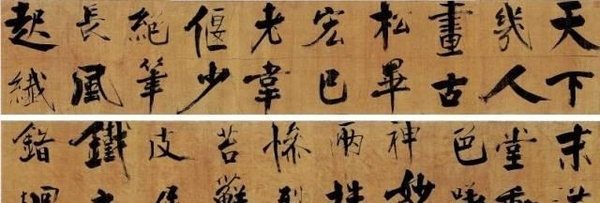 天下
幾人
畫古
松畢
宏已
老韋
偃少
絕筆
長風
起纖
末
堂
色
神妙
兩
慘
苔蘚
皮
鐵
錯